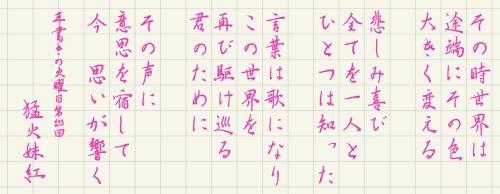 その時世界は
途端にその色
大きく変える
悲しみ喜び
全てを一人と
ひとつは知った
言葉は歌になり
この世界を
再び駆け巡る
君のために
その声に
意思を宿して
今 思いが響く
手書きの火曜日第233回
猛火妹紅